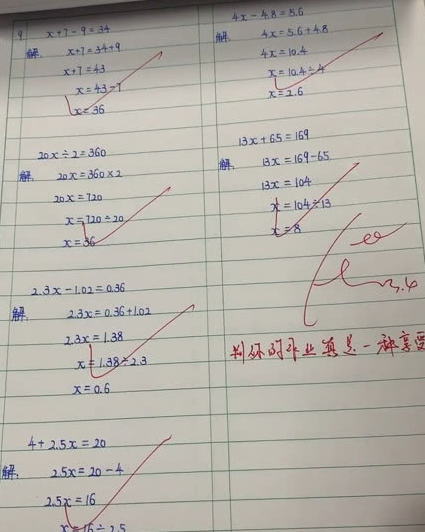 9 x+7-9=34
解. x+7=34+9
x+7=43
x=43-7
x=36
20x÷2=360
解. 20x=360×2
20x=720
x=720÷20
x=36
2.3x-1.02=0.36
解. 2.3x=0.36+1.02
2.3x=1.38
x=1.38÷2.3
x=0.6
4+2.5x=20
解. 2.5x=20-4
2.5x=16
x=16÷2.5
4x-4.8=5.6
解. 4x=5.6+4.8
4x=10.4
x=10.4÷4
x=2.6
13x+65=169
解. 13x=169-65
13x=104
x=104÷13
x=8
3.4
判你的作业真是一种享受